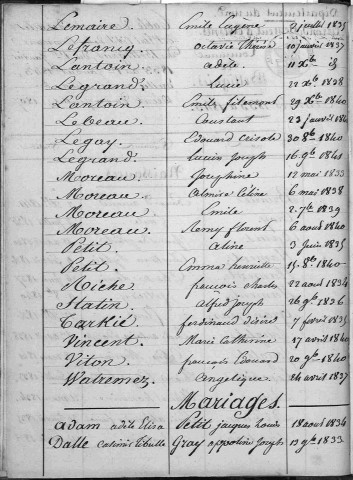 Lemaire. Emile Eugène 9 juillet 1835
Lefrancq. octavie Thérèse 10 janvier 1837
Lantoin. adèle 11 Xbre
Legrand. Lucie 22 Xbre 1838
Lantoin. Emile filemont 29 Xbre 1840
Lebeau. Constant 23 janvier 1840
Legay. Edouard 30 8bre 1840
Legrand. Lucien Joseph 16 9bre 1841
Moreau Joséphine 12 mai 1833
Moreau almire Céline 6 mai 1838
Moreau Emile 2 7bre 1839
Moreau. Remy florent 6 aout 1840
Petit. aline 3 juin 1835
Petit. Emma henriette 15 8bre 1840
Riche françois Charles 22 aout 1834
Statin. alfred Joseph 26 9bre 1836
Tarkié. ferdinand Désiré 7 fevrier 1835
Vincent. Marie Catherine 17 avril 1840
Viton. françois Edouard 20 9bre 1840
Watremez. angelique 24 avril 1837
Mariages.
adam adèle Elisa Petit jacques Louis 18 aout 1834
Dalle casimir Tibulle Gray appoline Joseph 13 9bre 1833